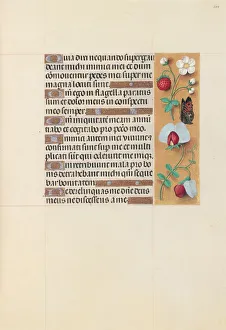 Quia dixi nequando supergau
deant michi inimici mei et dum
commoventur pedes mei super me
magna locuti sunt
ego in flagella paratus
sum et dolor meus in conspectu
meo semper
iniquitatem meam an
nuntiabo et cogitabo pro peccato meo
inimici autem mei vivunt et
confirmati sunt super me et multi
plicati sunt qui oderunt me iniq
retribuunt mala pro bo
nis detrahebant michi quia seque
bar bonitatem
Ne derelinquas me domine deus
meus ne discesseris a me